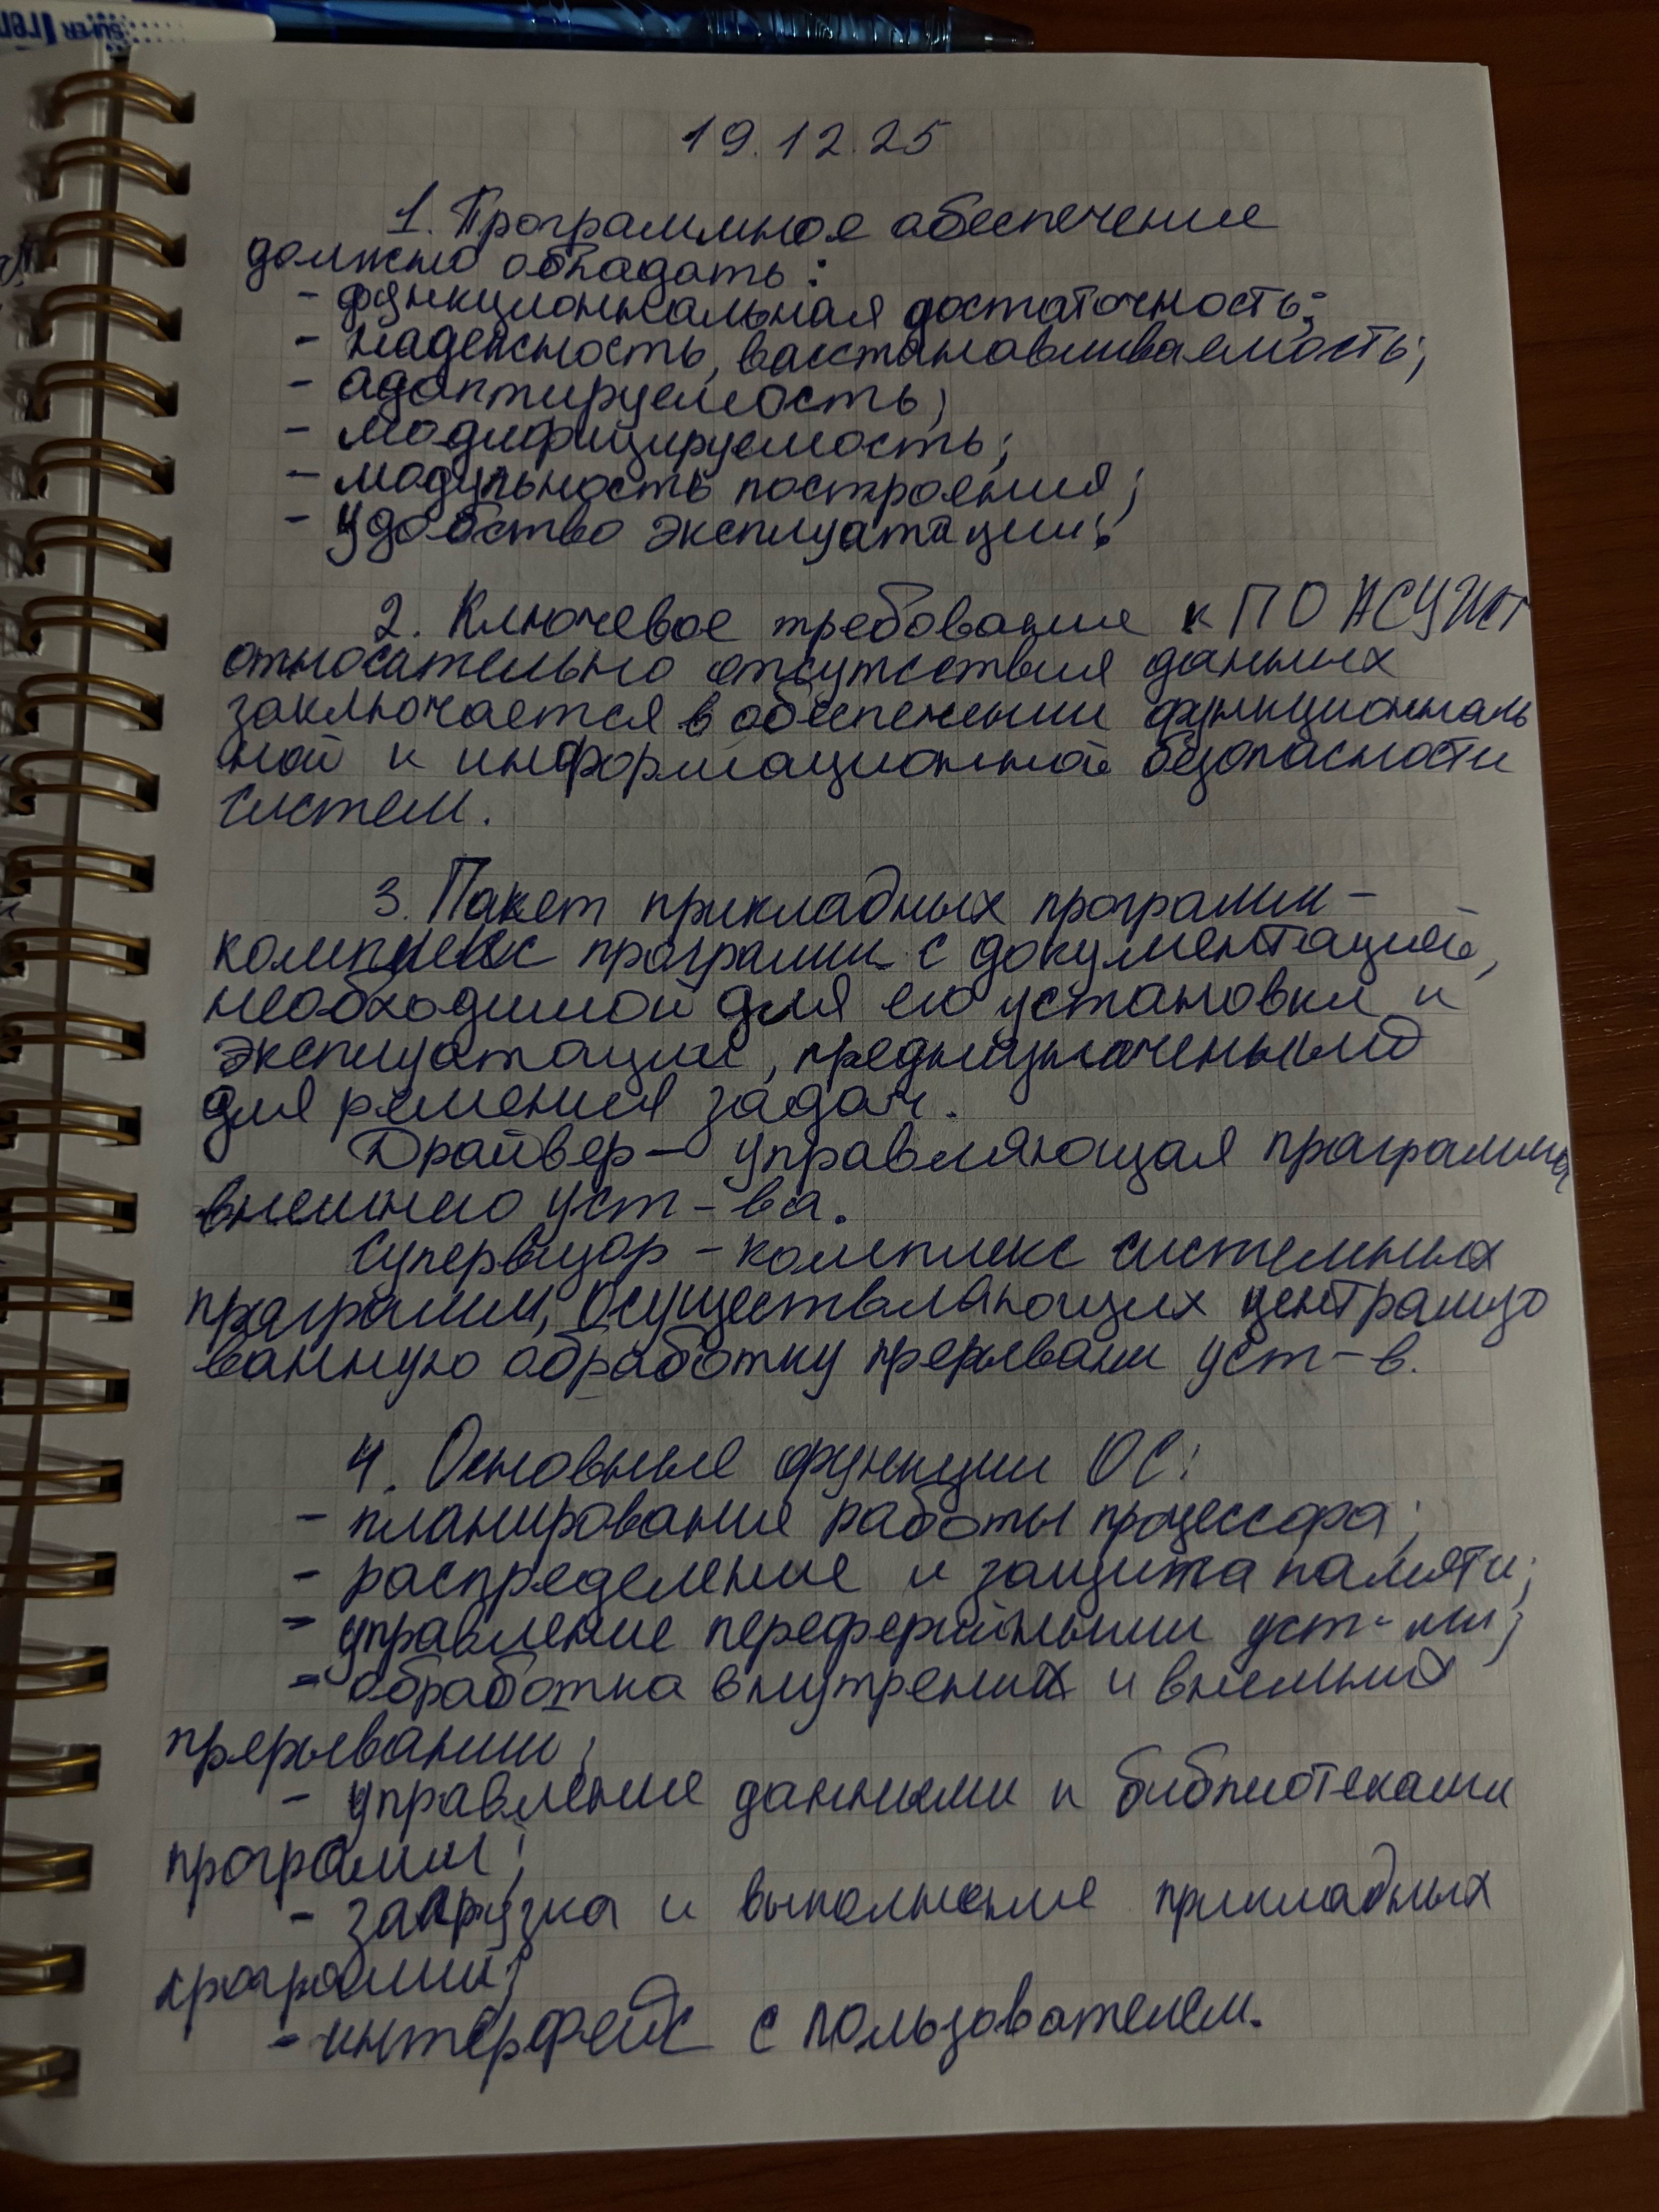 SUPER Iren
19.12.25
1. Программное абеспечение
должно обладать:
- функционнальная достаточность;
- надежность, васстанавливаемость;
- адаптируемость;
- модифицируемость;
- модульность построения;
- Удобство эксплуатации.
2. Ключевое требование к ПО АСУЖТ
относательно отсутствия данных
заключается в обеспечении функционналь
ной и информационной безопасности
систем.
3. Пакет прикладных программ -
комплекс программ с документацией,
необходимой для его установки и
эксплуатации, предназначенный
для решения задач.
Драйвер - управляющая праграмма
внешнего уст-ва.
Супервизор - комплекс системных
праграмм, осуществляющих централизо
ванную обработку прерывани уст-в.
4. Основные функции ОС:
- планирование работы процессора;
- распределение и защита памяти;
- управление переферийными уст-ми;
- обработка внутрених и внешних
прерывании;
- управление данными и библиотеками
программ;
- загрузка и выполнение прикладных
программ;
- интерфейс с пользователем.